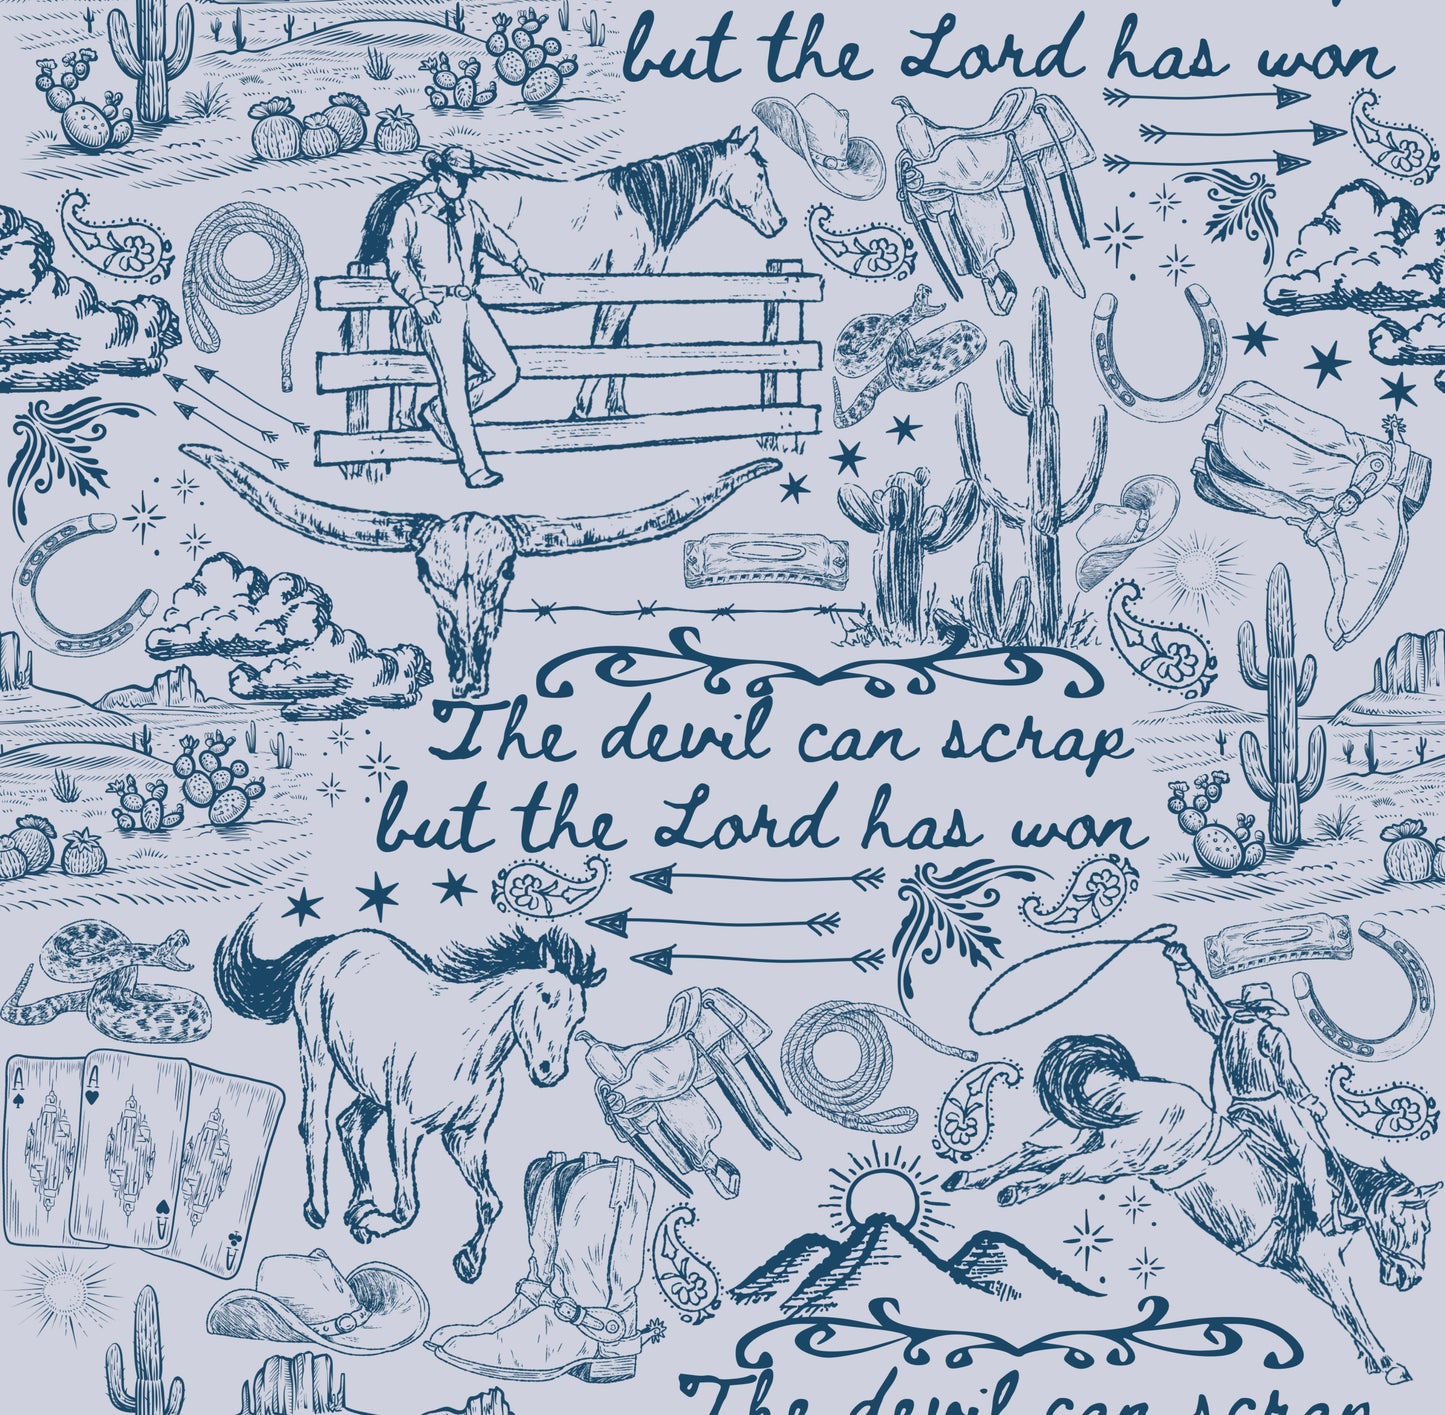 but the Lord has won
The devil can scrap
but the Lord has won
A
A
A
A
The devil can scrap